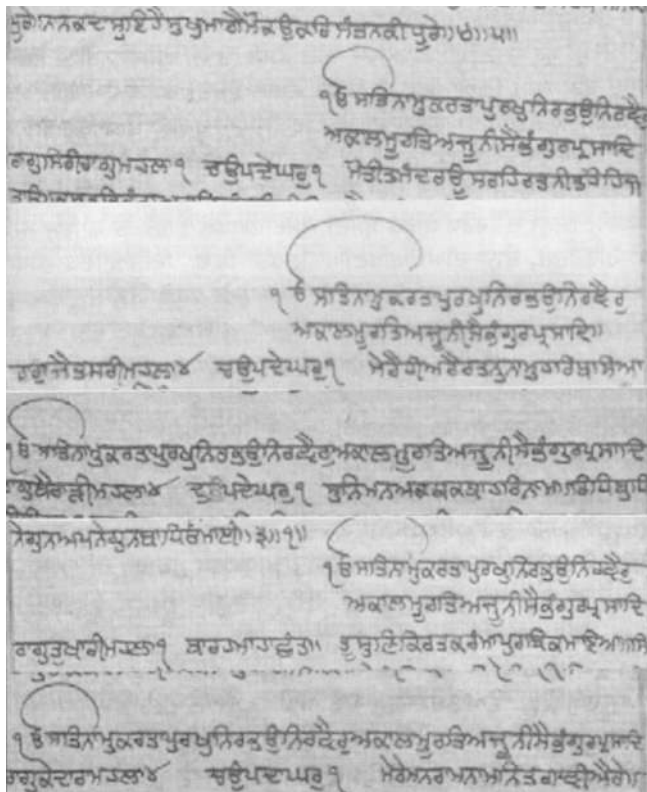 ੴ ਸਤਿਨਾਮੁਕਰਤਾਪੁਰਖੁਨਿਰਭਉਨਿਰਵੈਰੁ
ਅਕਾਲਮੂਰਤਿਅਜੂਨੀਸੈਭੰਗੁਰਪ੍ਰਸਾਦਿ
ਰਾਗੁਸਿਰੀਰਾਗੁਮਹਲਾ੧ ਚਉਪਦੇਘਰੁ੧ ਮੋਤੀਤਮੰਦਰਊਸਰਹਿਰਤਨੀਤਹੋਹਿ
ੴ ਸਤਿਨਾਮੁਕਰਤਾਪੁਰਖੁਨਿਰਭਉਨਿਰਵੈਰੁ
ਅਕਾਲਮੂਰਤਿਅਜੂਨੀਸੈਭੰਗੁਰਪ੍ਰਸਾਦਿ॥
ਰਾਗੁਜੈਤਸਰੀਮਹਲਾ੪ ਚਉਪਦੇਘਰੁ੧ ਮੇਰੈਹੀਅਰੈਰਤਨੁਨਾਮੁਹਰਿਬਸਿਆ
ੴ ਸਤਿਨਾਮੁਕਰਤਾਪੁਰਖੁਨਿਰਭਉਨਿਰਵੈਰੁਅਕਾਲਮੂਰਤਿਅਜੂਨੀਸੈਭੰਗੁਰਪ੍ਰਸਾਦਿ
ਰਾਗੁਬੈਰਾੜੀਮਹਲਾ੪ ਦੁਪਦੇਘਰੁ੧ ਸੁਨਿਮਨਅਕਥਕਥਾਹਰਿਨਾਮ
ੴ ਸਤਿਨਾਮੁਕਰਤਾਪੁਰਖੁਨਿਰਭਉਨਿਰਵੈਰੁ
ਅਕਾਲਮੂਰਤਿਅਜੂਨੀਸੈਭੰਗੁਰਪ੍ਰਸਾਦਿ
ਰਾਗੁਤੁਖਾਰੀਮਹਲਾ੧ ਬਾਰਹਮਾਹਾਛੰਤ॥ ਤੂਸੁਣਿਕਿਰਤਕਰੰਮਾਪੁਰਬਿਕਮਾਇਆ॥
ੴ ਸਤਿਨਾਮੁਕਰਤਾਪੁਰਖੁਨਿਰਭਉਨਿਰਵੈਰੁਅਕਾਲਮੂਰਤਿਅਜੂਨੀਸੈਭੰਗੁਰਪ੍ਰਸਾਦਿ
ਰਾਗੁਕੇਦਾਰਾਮਹਲਾ੪ ਚਉਪਦਾਘਰੁ੧ ਮੇਰੇਮਨਰਾਮਨਾਮਨਿਤਗਾਵੀਐਰੇ